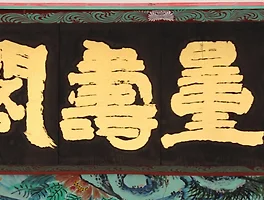 量壽閣